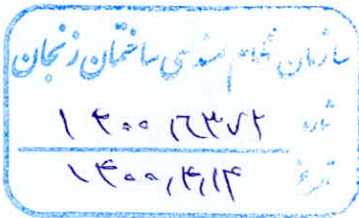 سازمان نظام مهندسی ساختمان زنجان
شماره ۱۴۰۰/۶۳۷۲
تاریخ ۱۴۰۰/۴/۱۴